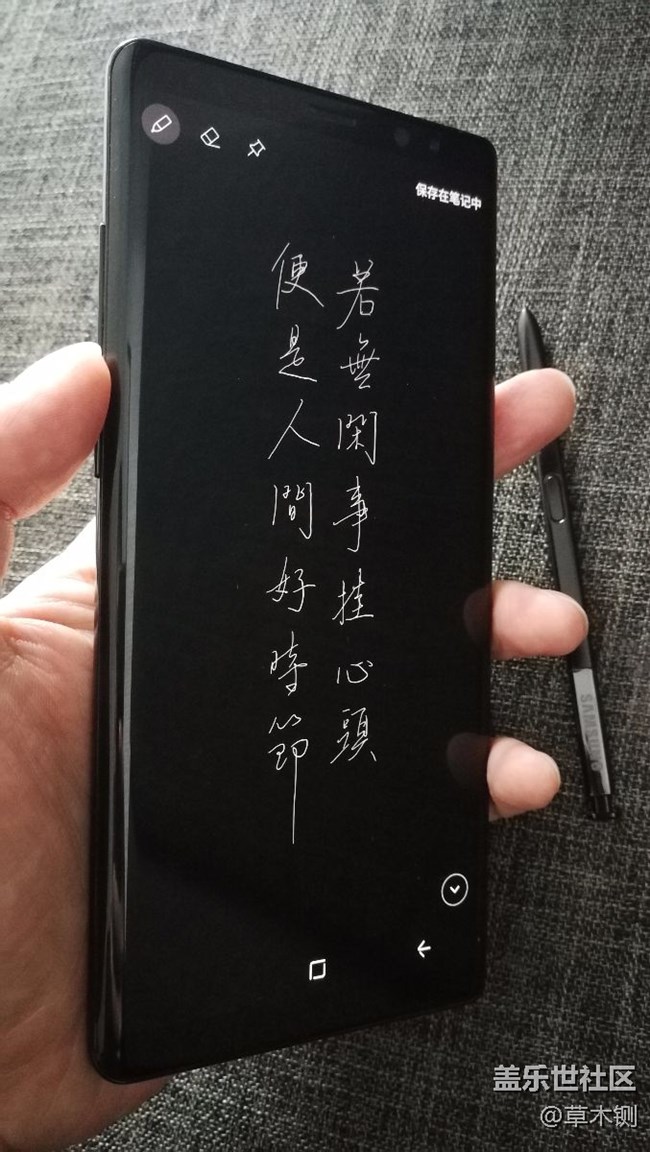 保存在笔记中
若無閑事挂心頭
便是人間好時節
SAMSUNG
盖乐世社区
@草木铡